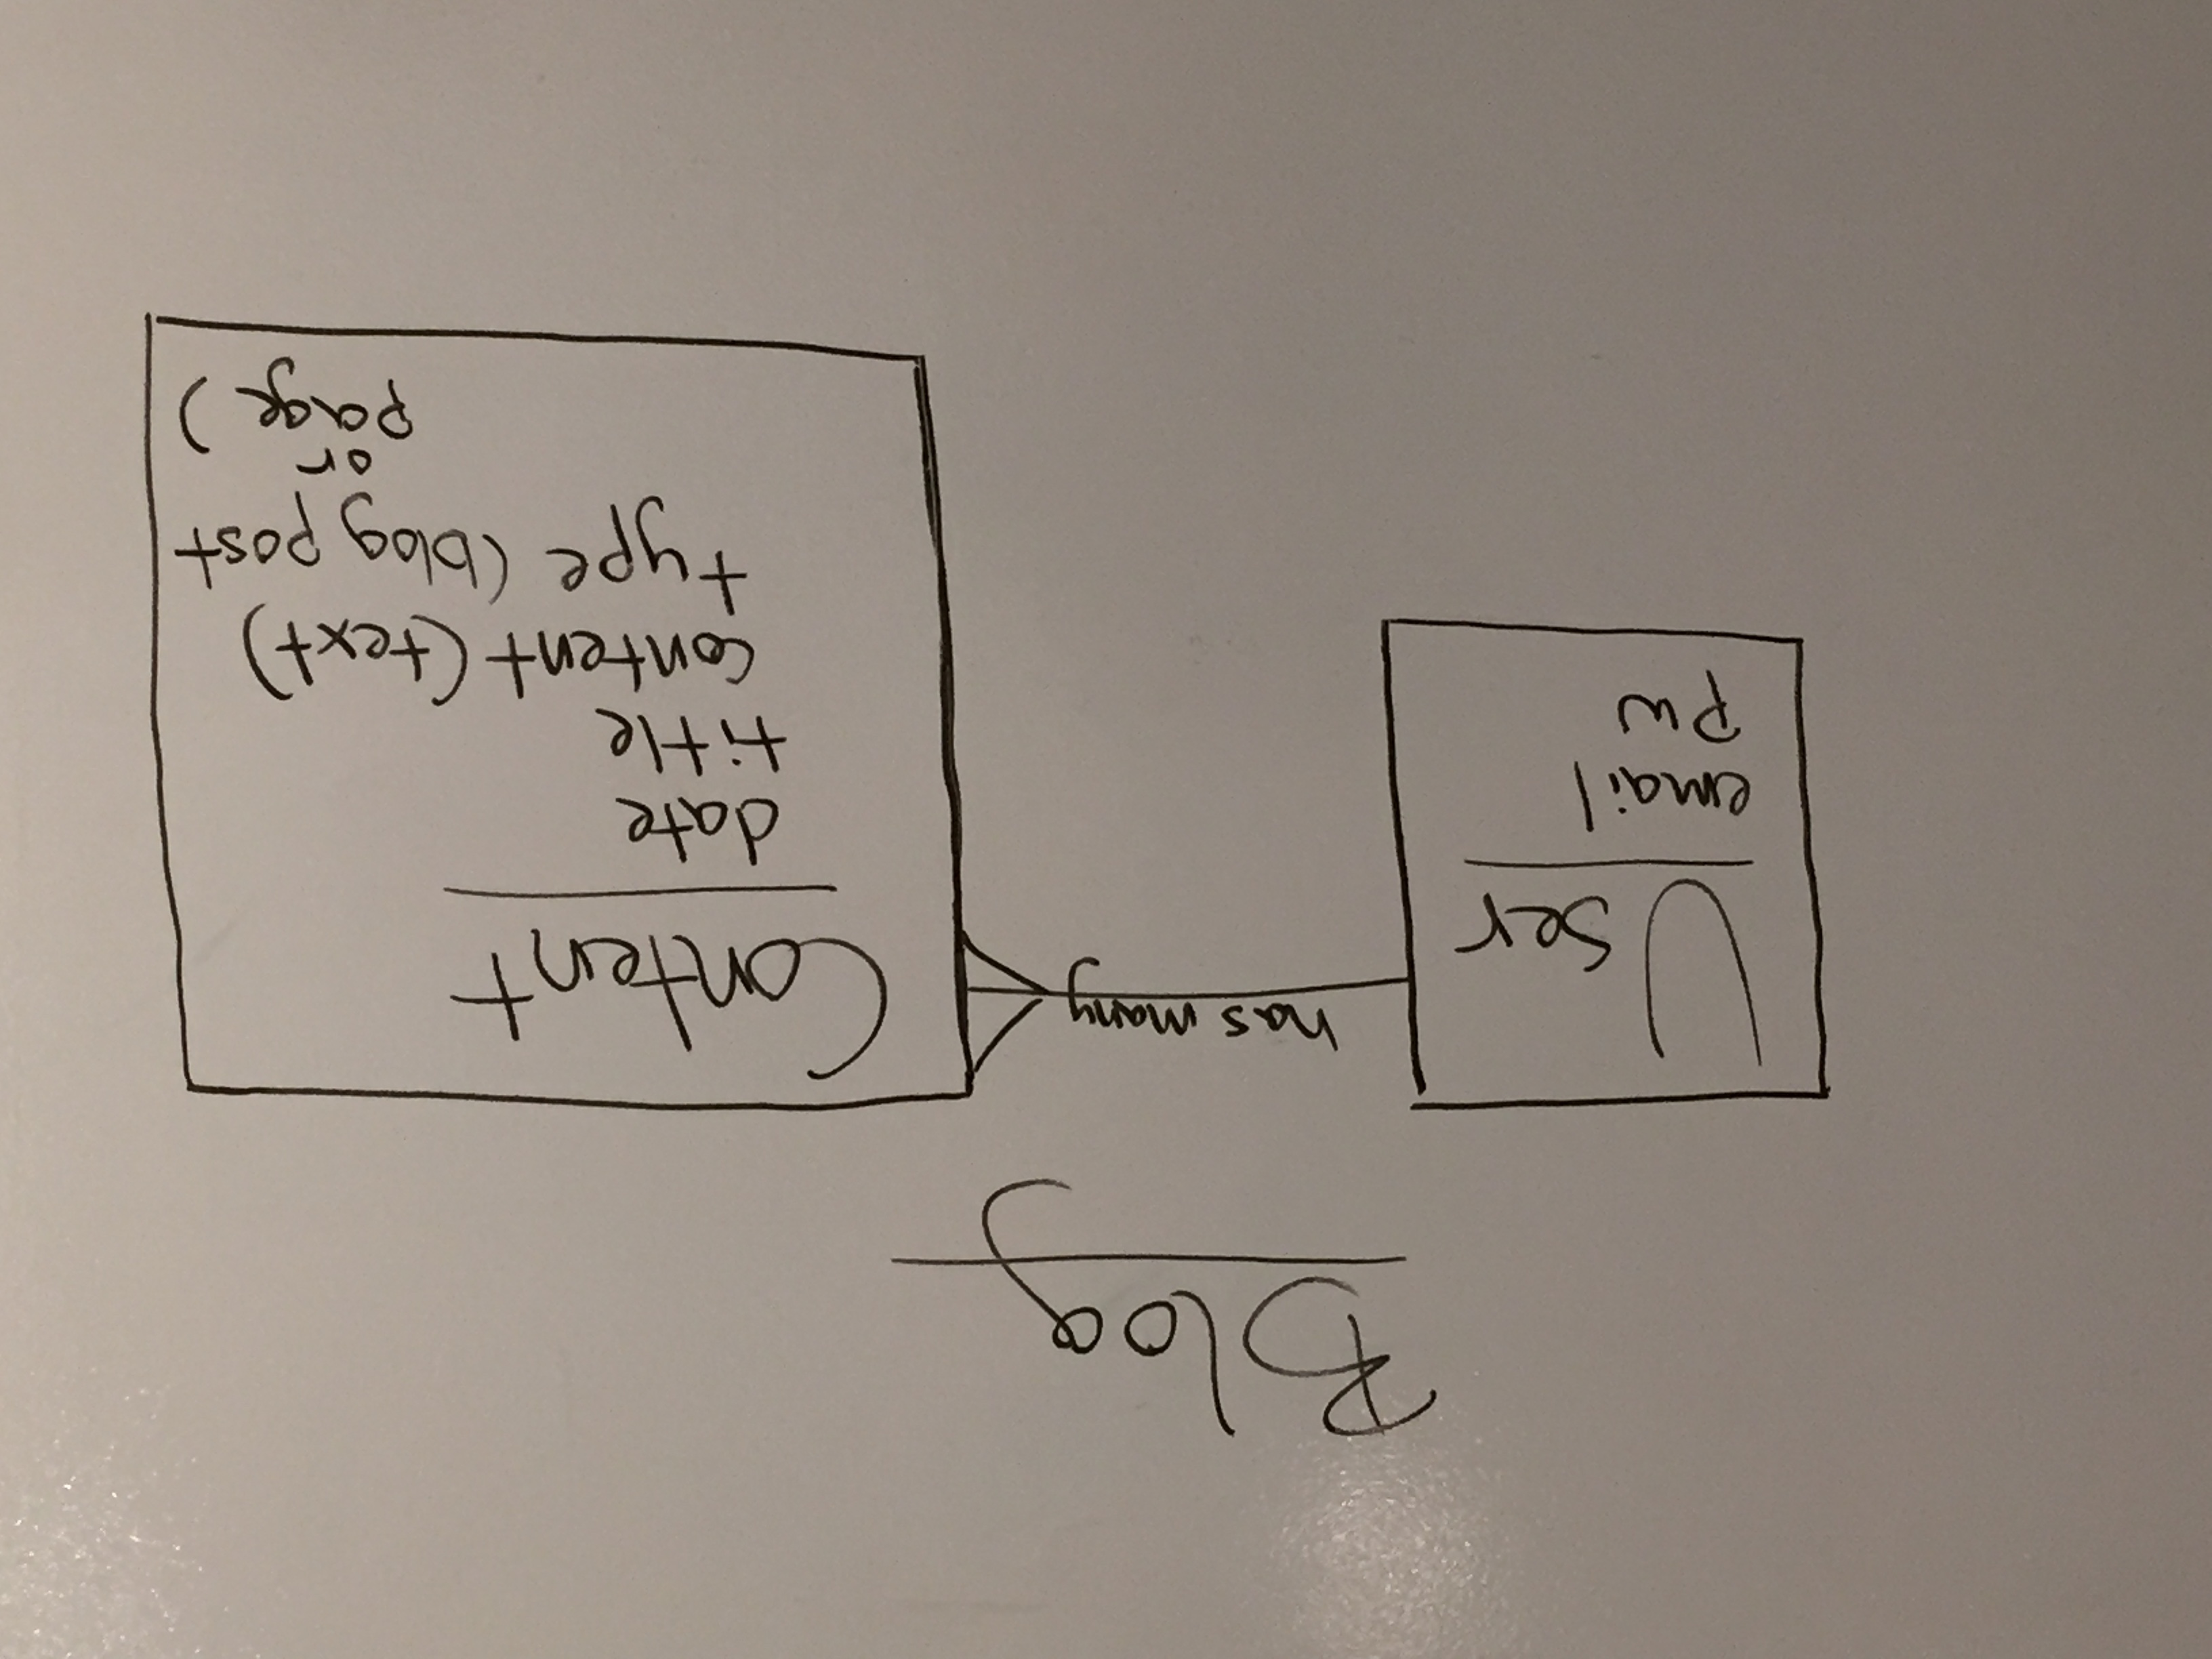 Blog
User
email
pw
has many
Content
date
title
content (text)
type (blog post
or
page)